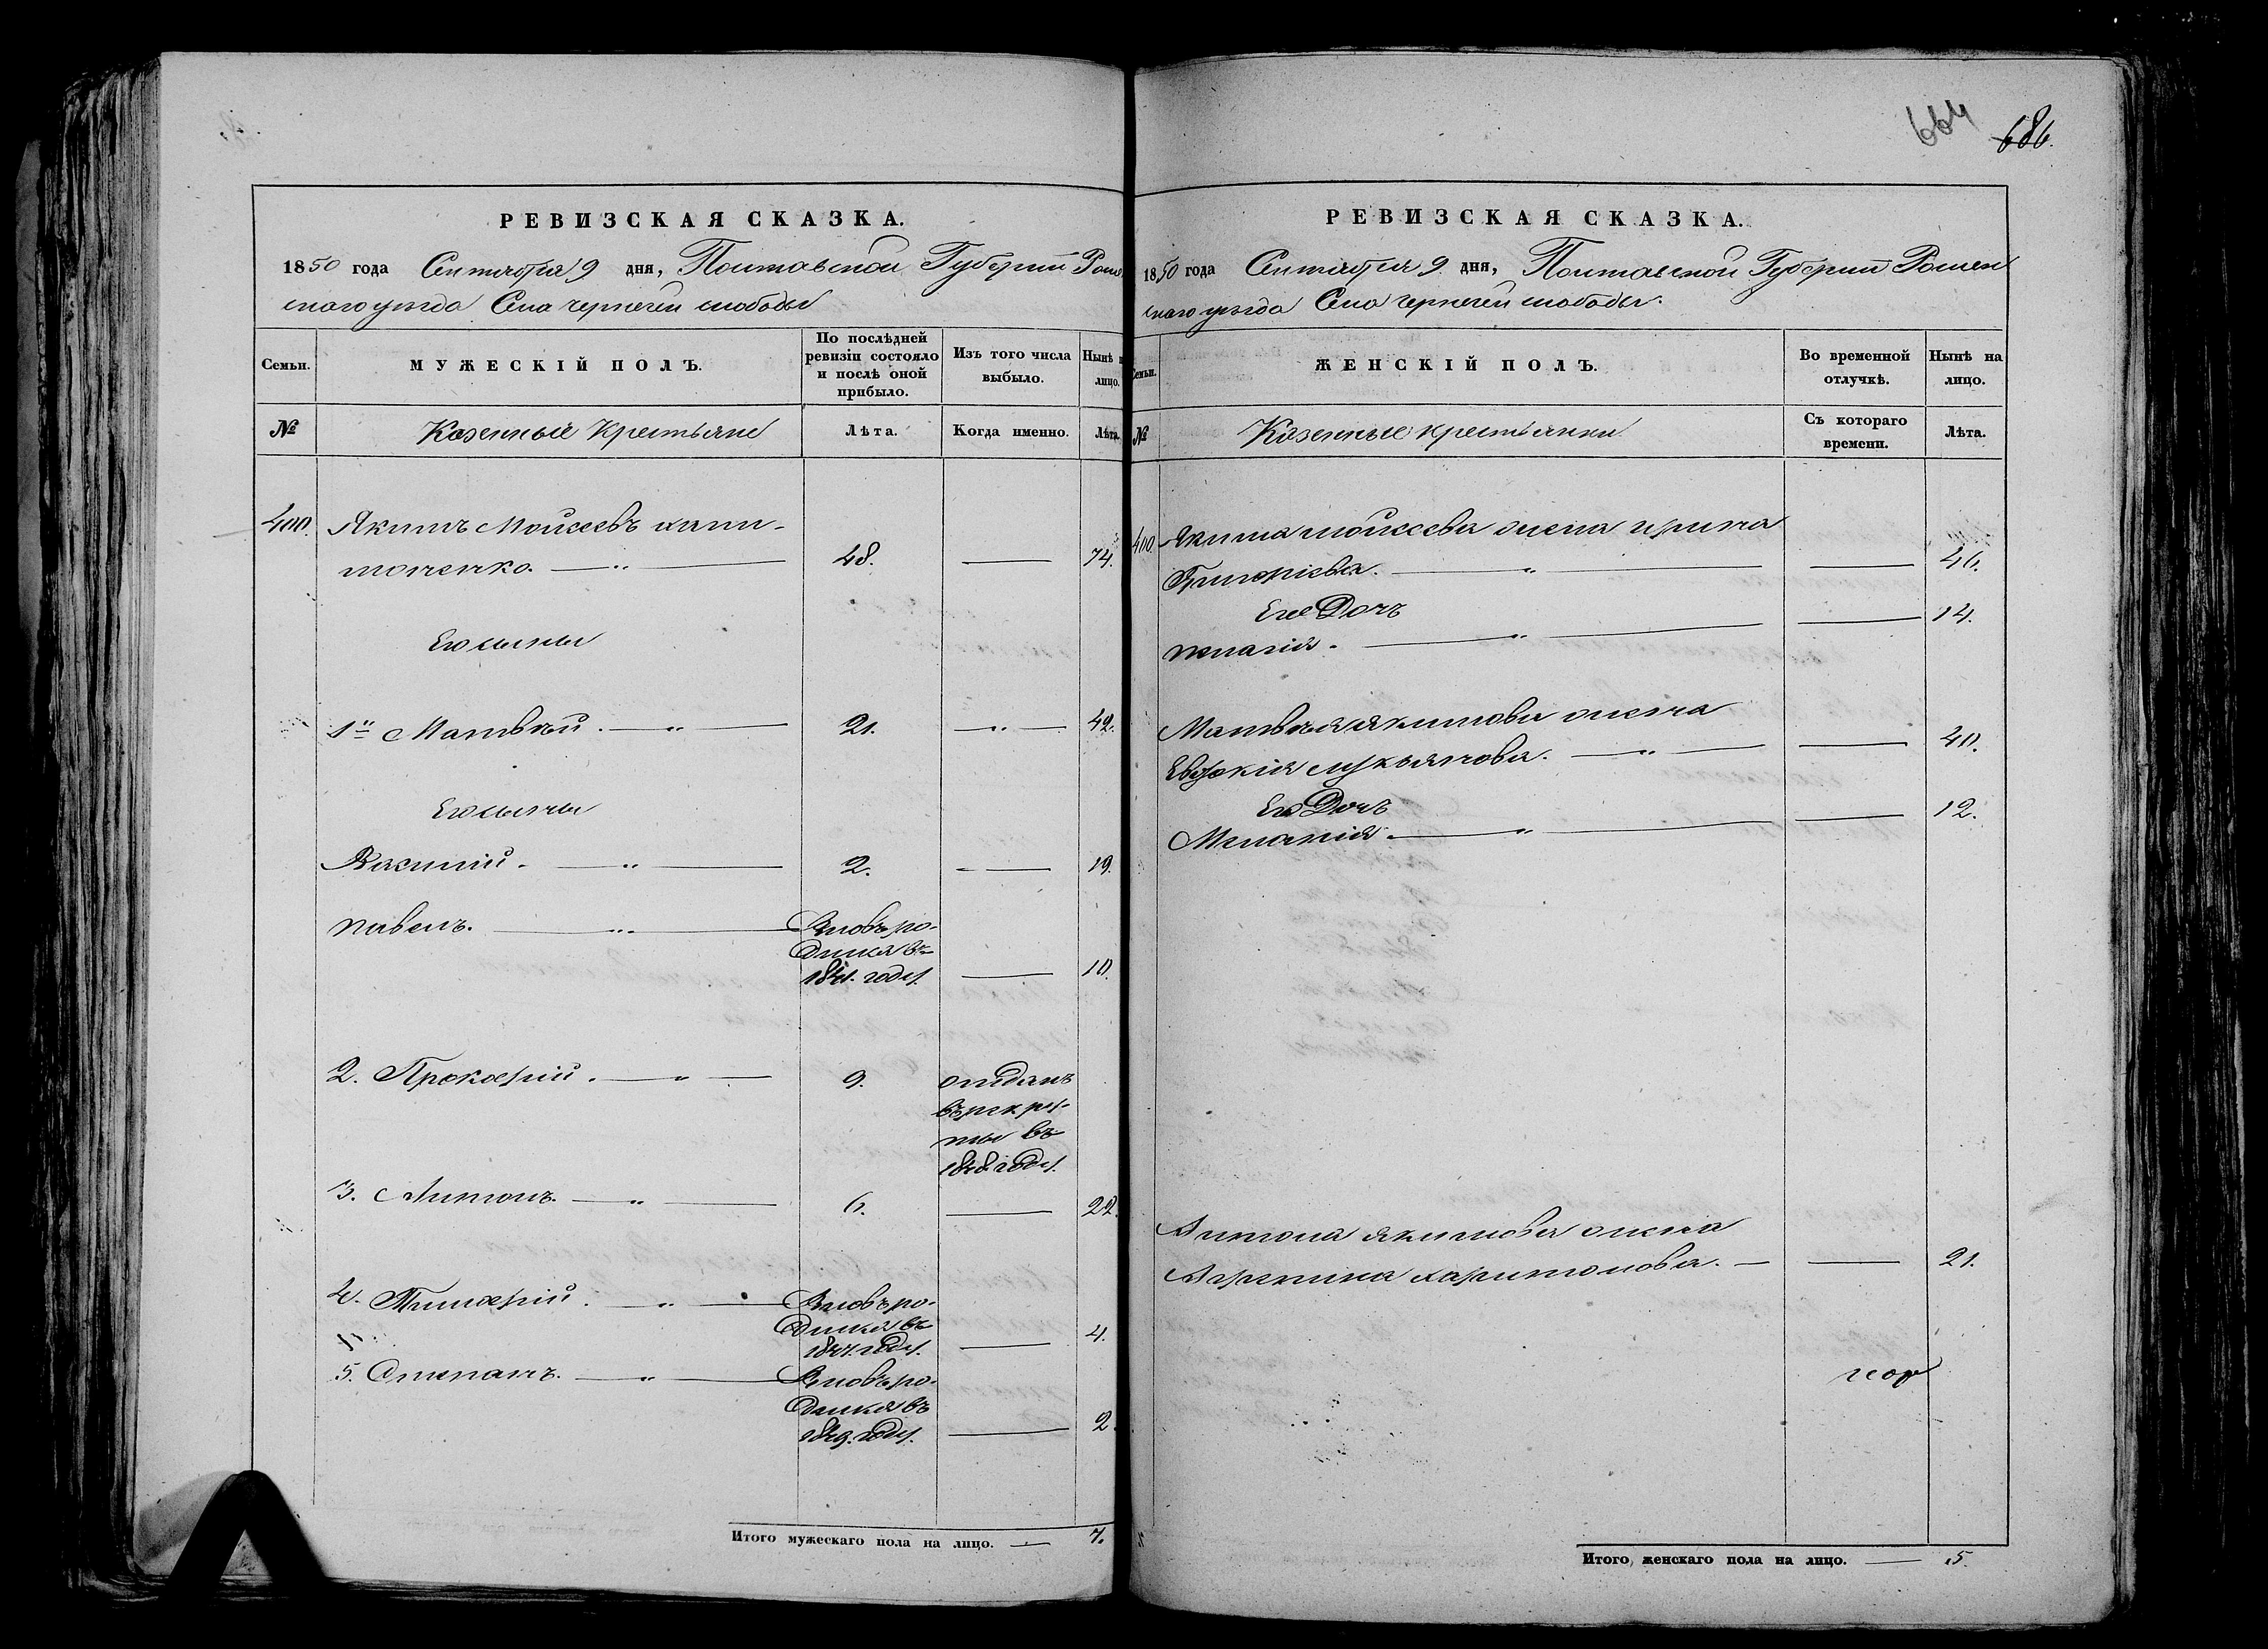 664
686.
РЕВИЗСКАЯ СКАЗКА.
1850 года Сентября 9 дня, Полтавской Губернии Ромен
скаго уезда Села чернечей слободы
Семьи.
МУЖЕСКІЙ ПОЛЪ.
По послѣдней ревизіи состояло и послѣ оной прибыло.
Изъ того числа выбыло.
Нынѣ на лицо.
№
Казенные крестьяне
Лѣта.
Когда именно.
Лѣта.
400. Якимъ Моисеевъ хари-
тоненко. 48. 74.
Его сыны
1й Матвѣй. 21. 42.
Его сыны
Василій. 2. 19.
павелъ. Вновь ро-
дился въ
1841. году. 10.
2. Прокофій. 9. отданъ
въ рекру-
ты въ
1848 году.
3. Антонъ. 6. 22.
4. Тимофій. Вновь ро-
дился въ
1847. году. 4.
5. Степанъ. Вновь ро-
дился въ
1849. году. 2.
Итого мужескаго пола на лицо. 7.
РЕВИЗСКАЯ СКАЗКА.
1850 года Сентября 9 дня, Полтавской Губернии Ромен
скаго уезда Села чернечей слободы.
Семьи.
ЖЕНСКІЙ ПОЛЪ.
Во временной отлучкѣ.
Нынѣ на лицо.
№
Казенные крестьянки
Съ котораго времени.
Лѣта.
400 Якима моисеева жена ирина
Григоріева. 46.
Его Дочь
пелагія. 14.
Матвѣя якимова жена
Евдокія лукьянова. 40.
Его Дочь
Меланія. 12.
Антона якимова жена
Агрипина харитонова. 21.
Итого женскаго пола на лицо. 5.